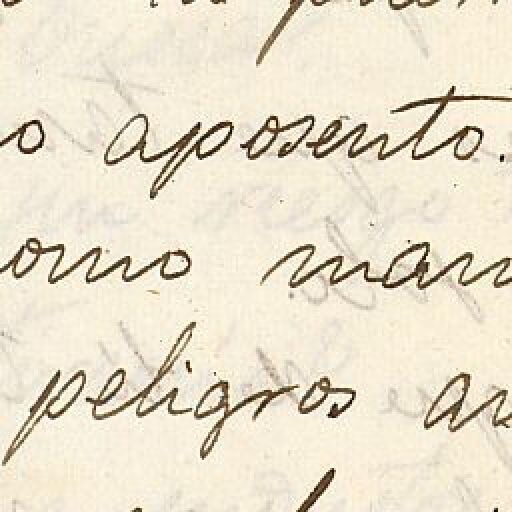 o aposento.
omo man
peligros an